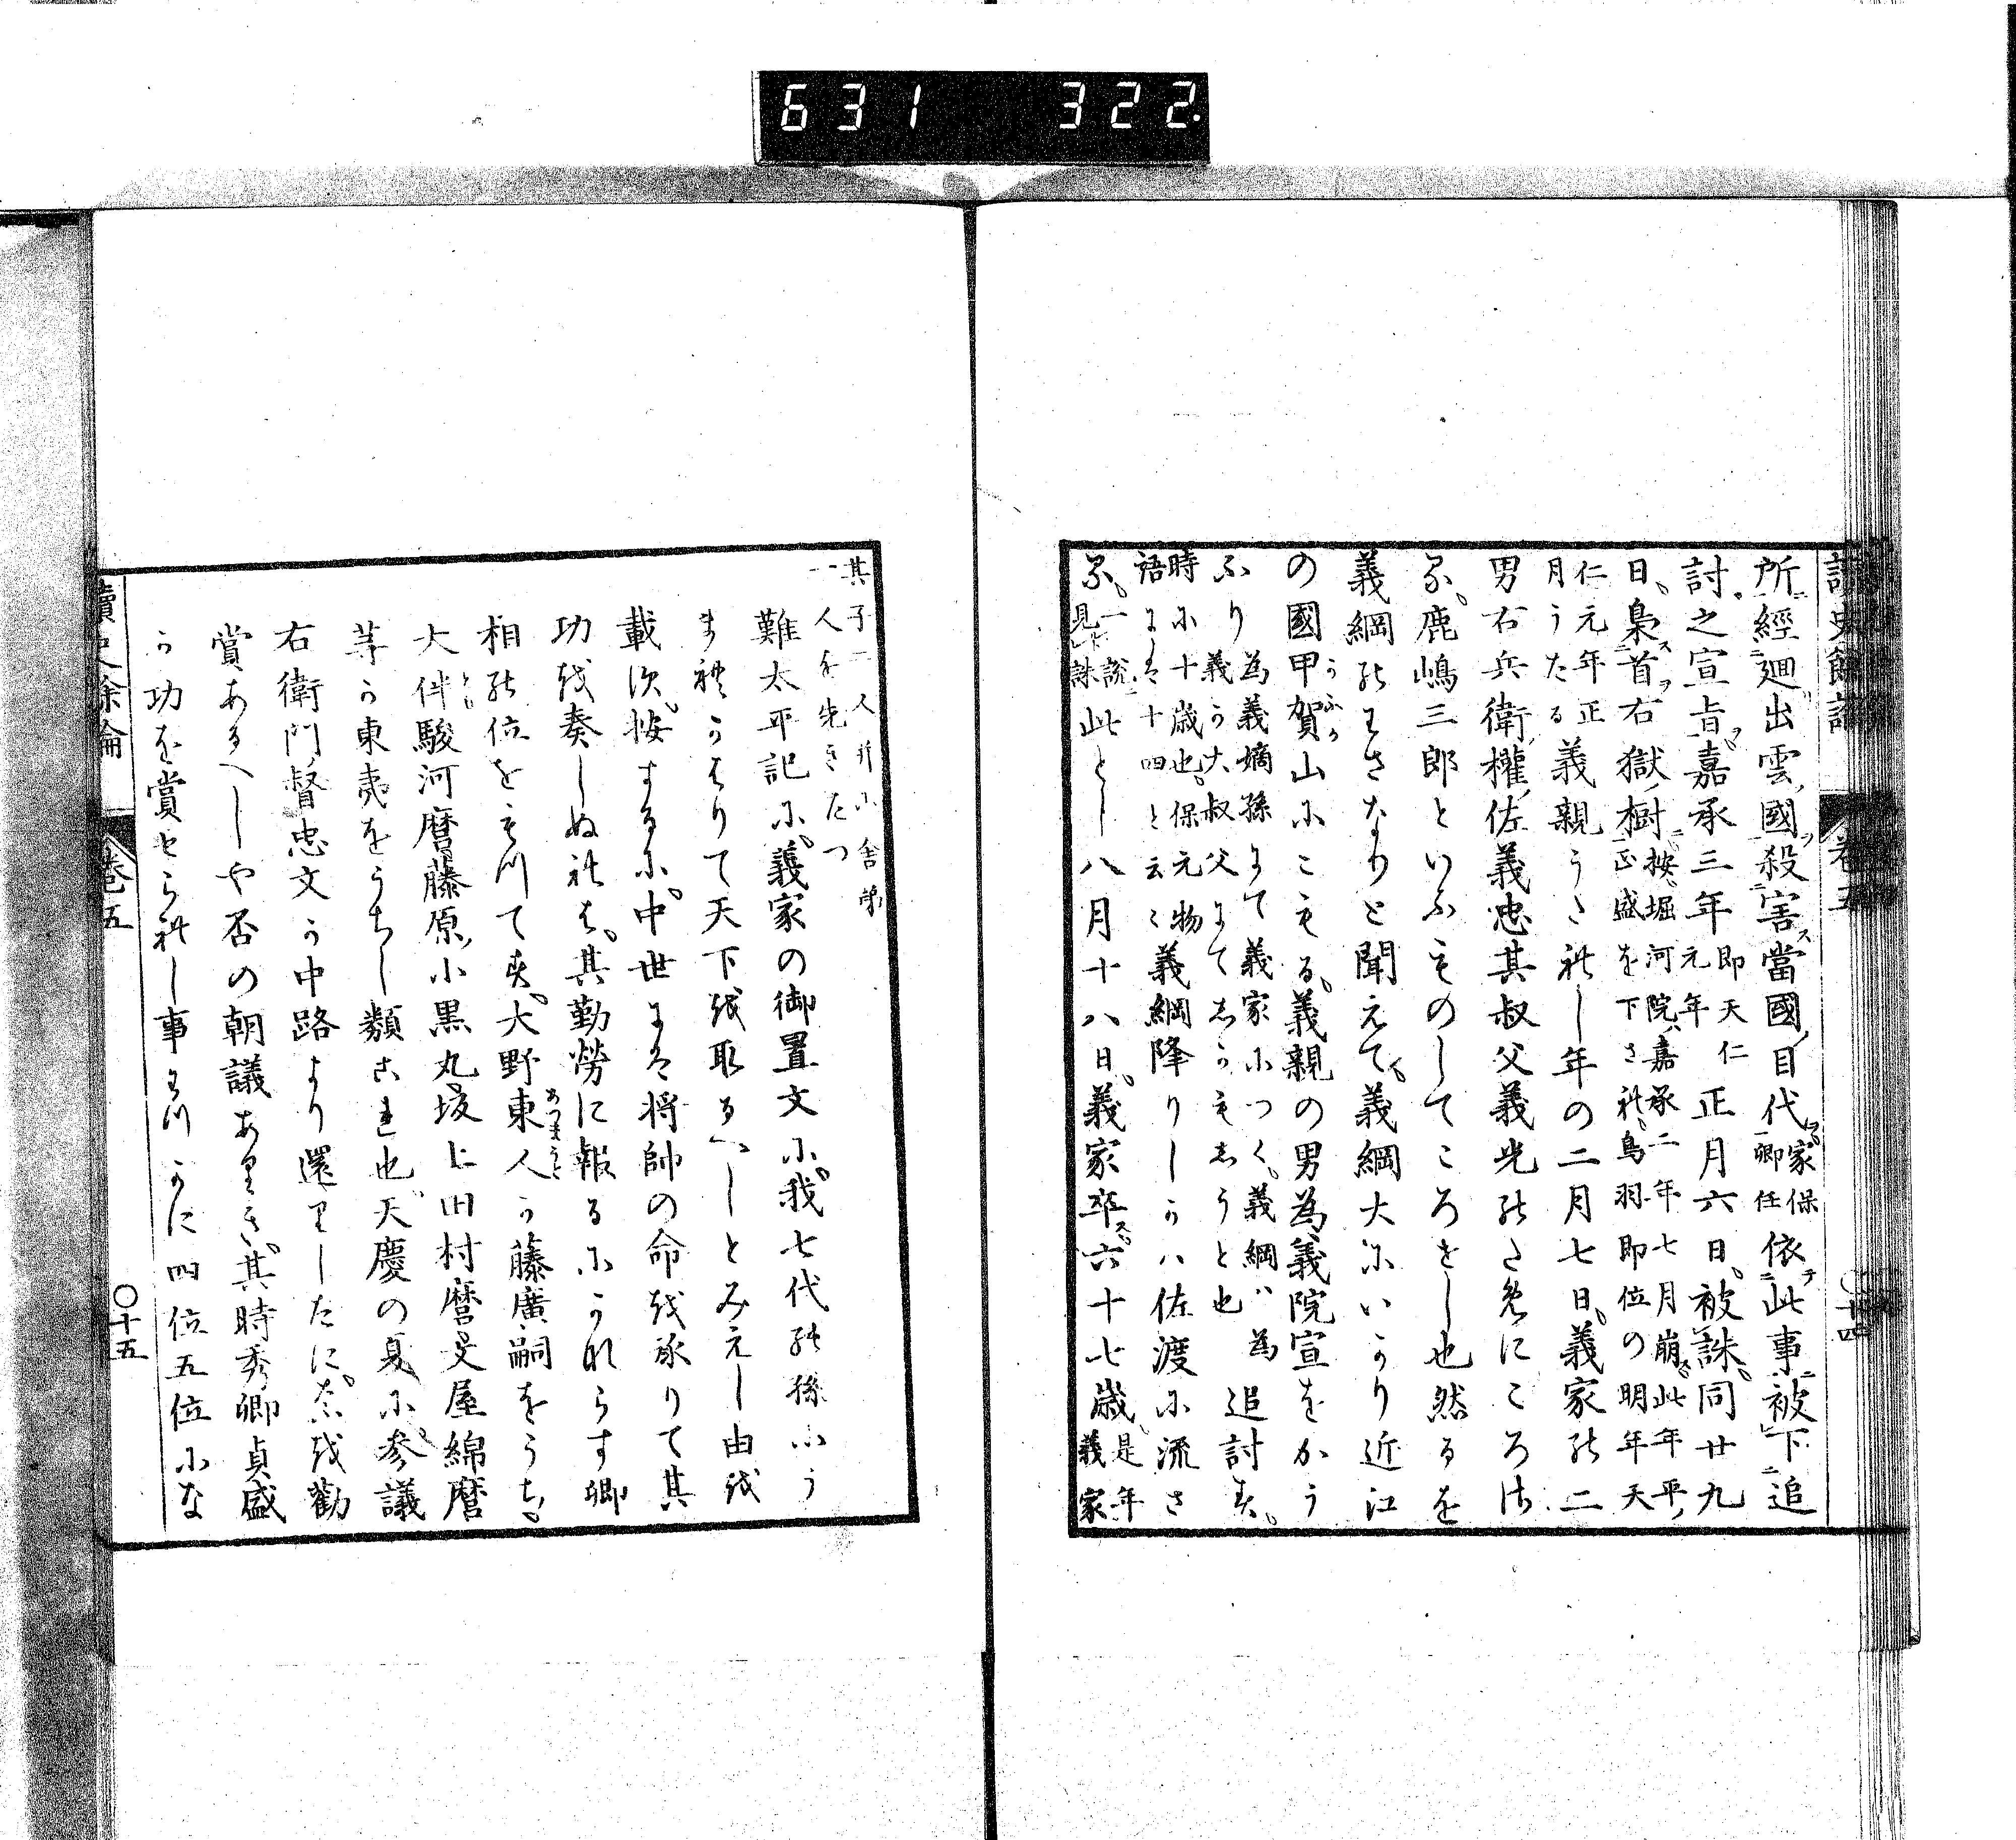 631 322.
讀史餘論 卷五 ○十四
所經廻出雲國殺害當國目代家保卿任依此事被下追
討之宣旨嘉承三年即天仁元年正月六日被誅同廿九
日梟首右獄樹按堀河院嘉承二年七月崩此年平正盛を下され鳥羽即位の明年天
仁元年正月うたる義親うたれし年の二月七日義家の二
男右兵衛權佐義忠其叔父義光のためにころさ
る鹿嶋三郎といふものしてころせし也然るを
義綱のわさなりと聞えて義綱大にいかり近江
の國甲賀山にこもる義親の男為義院宣をかう
ふり為義嫡孫にて義家につく義綱ハ為義か大叔父にてしかもしうと也追討す
時に十歳也保元物語には十四と云々義綱降りしかハ佐渡に流さ
る一説見誅此とし八月十八日義家卒六十七歳是年義家
其子二人并に舍弟一人を先きたつ
難太平記に義家の御置文に我七代の孫にう
まれかはりて天下を取るへしとみえし由を
載次按するに中世には将帥の命を承りて其
功を奏しぬれは其勤勞に報るにかならす卿
相の位をもつてす大野東人か藤廣嗣をうち
大伴駿河麿藤原小黒丸坂上田村麿文屋綿麿
等か東夷をうちし類これ也天慶の夏に参議
右衛門督忠文か中路より還りしたに忠を勸
賞あるへしや否の朝議ありき其時秀郷貞盛
か功を賞せられし事わつかに四位五位にな
讀史餘論 卷五 ○十五